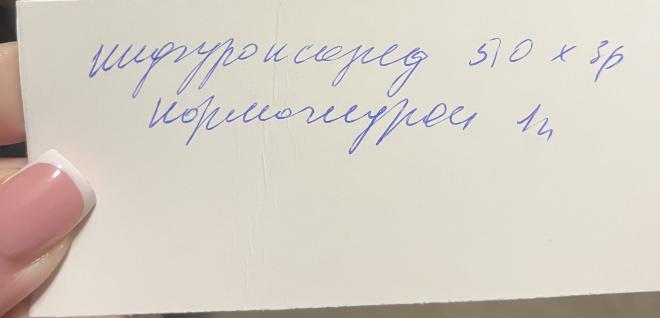 нифуроксазид 5,0 х 3р
нормогидрон 1п